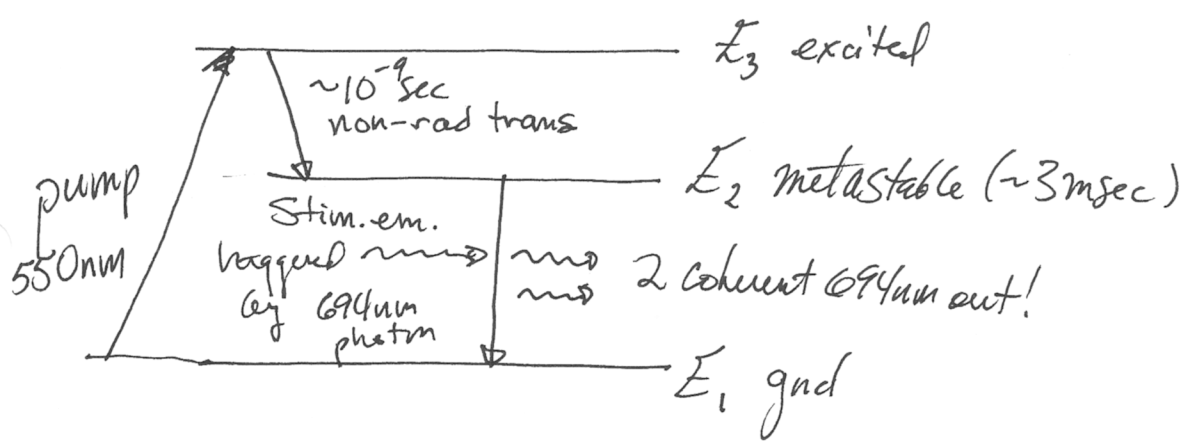 E₃ excited
~10⁻⁹ sec
non-rad trans
E₂ metastable (~3 msec)
pump
550nm
Stim. em.
triggered
by 694nm
photon
2 coherent 694nm out!
E₁ gnd